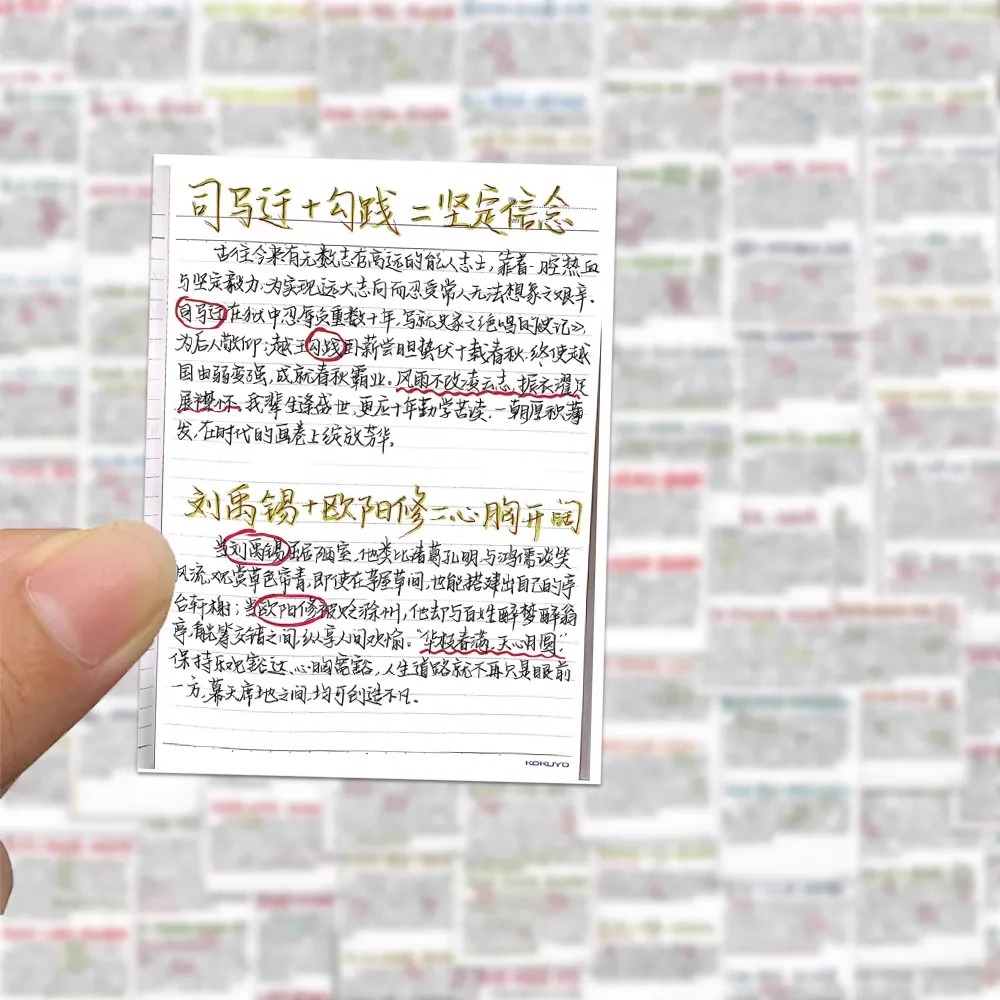 司马迁+勾践=坚定信念
古往今来有无数志存高远的能人志士,靠着一腔热血
与坚定毅力,为实现远大志向而忍受常人无法想象之艰辛。
司马迁在狱中忍辱负重数十年,写就史家之绝唱的《史记》,
为后人敬仰;越王勾践卧薪尝胆蛰伏十载春秋,终使越
国由弱变强,成就春秋霸业。风雨不改凌云志,振衣濯足
展襟怀。我辈生逢盛世,更应十年勤学苦读,一朝厚积薄
发,在时代的画卷上绽放芳华。
刘禹锡+欧阳修=心胸开阔
当刘禹锡居陋室,他类比诸葛孔明,与鸿儒谈笑
风流,观赏草色帘青,即使在茅屋草间,也能搭建出自己的亭
台轩榭;当欧阳修被贬滁州,他却与百姓醉梦醉翁
亭,觥筹交错之间,纵享人间欢愉。“华枝春满,天心月圆”,
保持乐观豁达、心胸宽豁,人生道路就不再只是眼前
一方,幕天席地之间,均可创造不凡。
KOKUYO